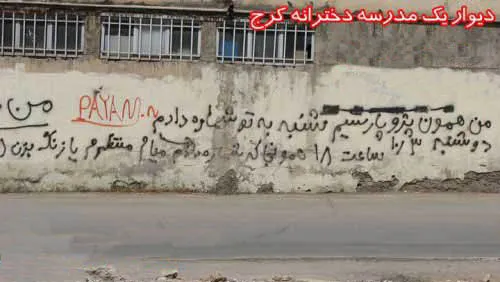 دیوار یک مدرسه دخترانه کرج
PAYAM
من
من همون پژو پارسیم شنبه به تو شماره دادم
دوشنبه
ساعت ۱۸ همونجا که شماره دادم میام منتظرم یا زنگ بزن